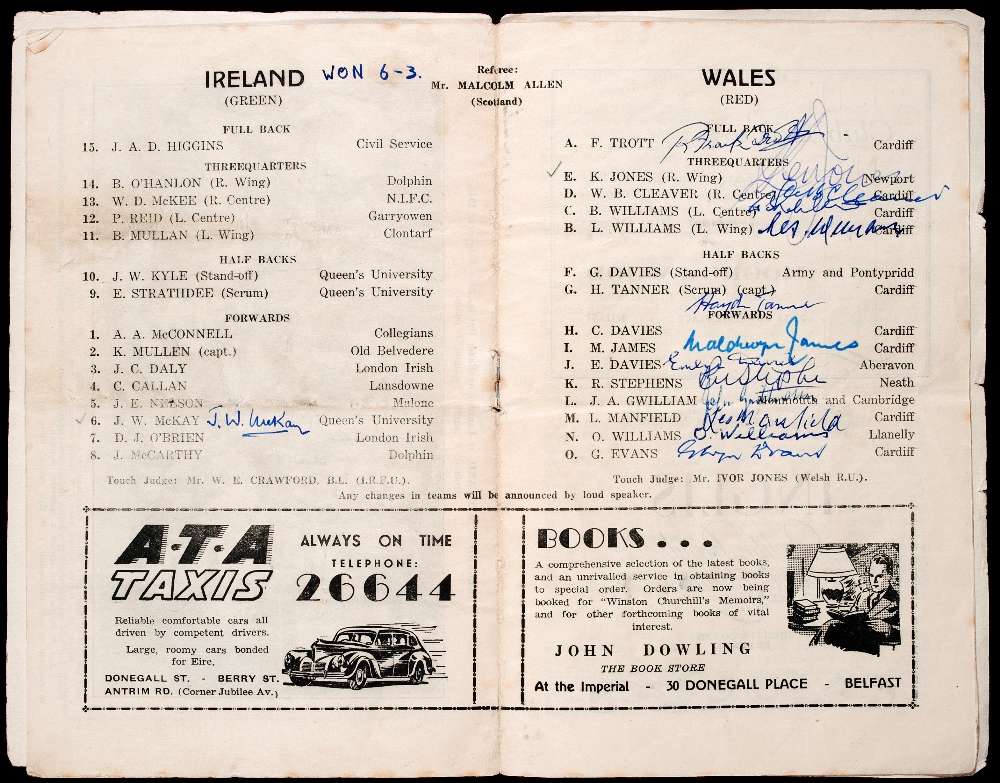 IRELAND WON 6-3.
(GREEN)
FULL BACK
15. J. A. D. HIGGINS Civil Service
THREEQUARTERS
14. B. O'HANLON (R. Wing) Dolphin
13. W. D. McKEE (R. Centre) N.I.F.C.
12. P. REID (L. Centre) Garryowen
11. B. MULLAN (L. Wing) Clontarf
HALF BACKS
10. J. W. KYLE (Stand-off) Queen's University
9. E. STRATHDEE (Scrum) Queen's University
FORWARDS
1. A. A. McCONNELL Collegians
2. K. MULLEN (capt.) Old Belvedere
3. J. C. DALY London Irish
4. C. CALLAN Lansdowne
5. J. E. NELSON Malone
6. J. W. McKAY J. W. McKay Queen's University
7. D. J. O'BRIEN London Irish
8. J. McCARTHY Dolphin
Touch Judge: Mr. W. E. CRAWFORD, B.L. (I.R.F.U.).
Referee:
Mr. MALCOLM ALLEN
(Scotland)
WALES
(RED)
FULL BACK
A. F. TROTT Cardiff
THREEQUARTERS
E. K. JONES (R. Wing) Newport
D. W. B. CLEAVER (R. Centre) Cardiff
C. B. WILLIAMS (L. Centre) Cardiff
B. L. WILLIAMS (L. Wing) Les Williams Cardiff
HALF BACKS
F. G. DAVIES (Stand-off) Army and Pontypridd
G. H. TANNER (Scrum) (capt.) Cardiff
Haydn Tanner
FORWARDS
H. C. DAVIES Cardiff
I. M. JAMES Maldwyn James Cardiff
J. E. DAVIES Aberavon
K. R. STEPHENS Neath
L. J. A. GWILLIAM Monmouth and Cambridge
M. L. MANFIELD Les Manfield Cardiff
N. O. WILLIAMS O. Williams Llanelly
O. G. EVANS Gwyn Evans Cardiff
Touch Judge: Mr. IVOR JONES (Welsh R.U.).
Any changes in teams will be announced by loud speaker.
A·T·A
TAXIS
ALWAYS ON TIME
TELEPHONE:
26644
Reliable comfortable cars all
driven by competent drivers.
Large, roomy cars bonded
for Eire.
DONEGALL ST. - BERRY ST.
ANTRIM RD. (Corner Jubilee Av.)
BOOKS...
A comprehensive selection of the latest books,
and an unrivalled service in obtaining books
to special order. Orders are now being
booked for "Winston Churchill's Memoirs,"
and for other forthcoming books of vital
interest.
JOHN DOWLING
THE BOOK STORE
At the Imperial - 30 DONEGALL PLACE - BELFAST